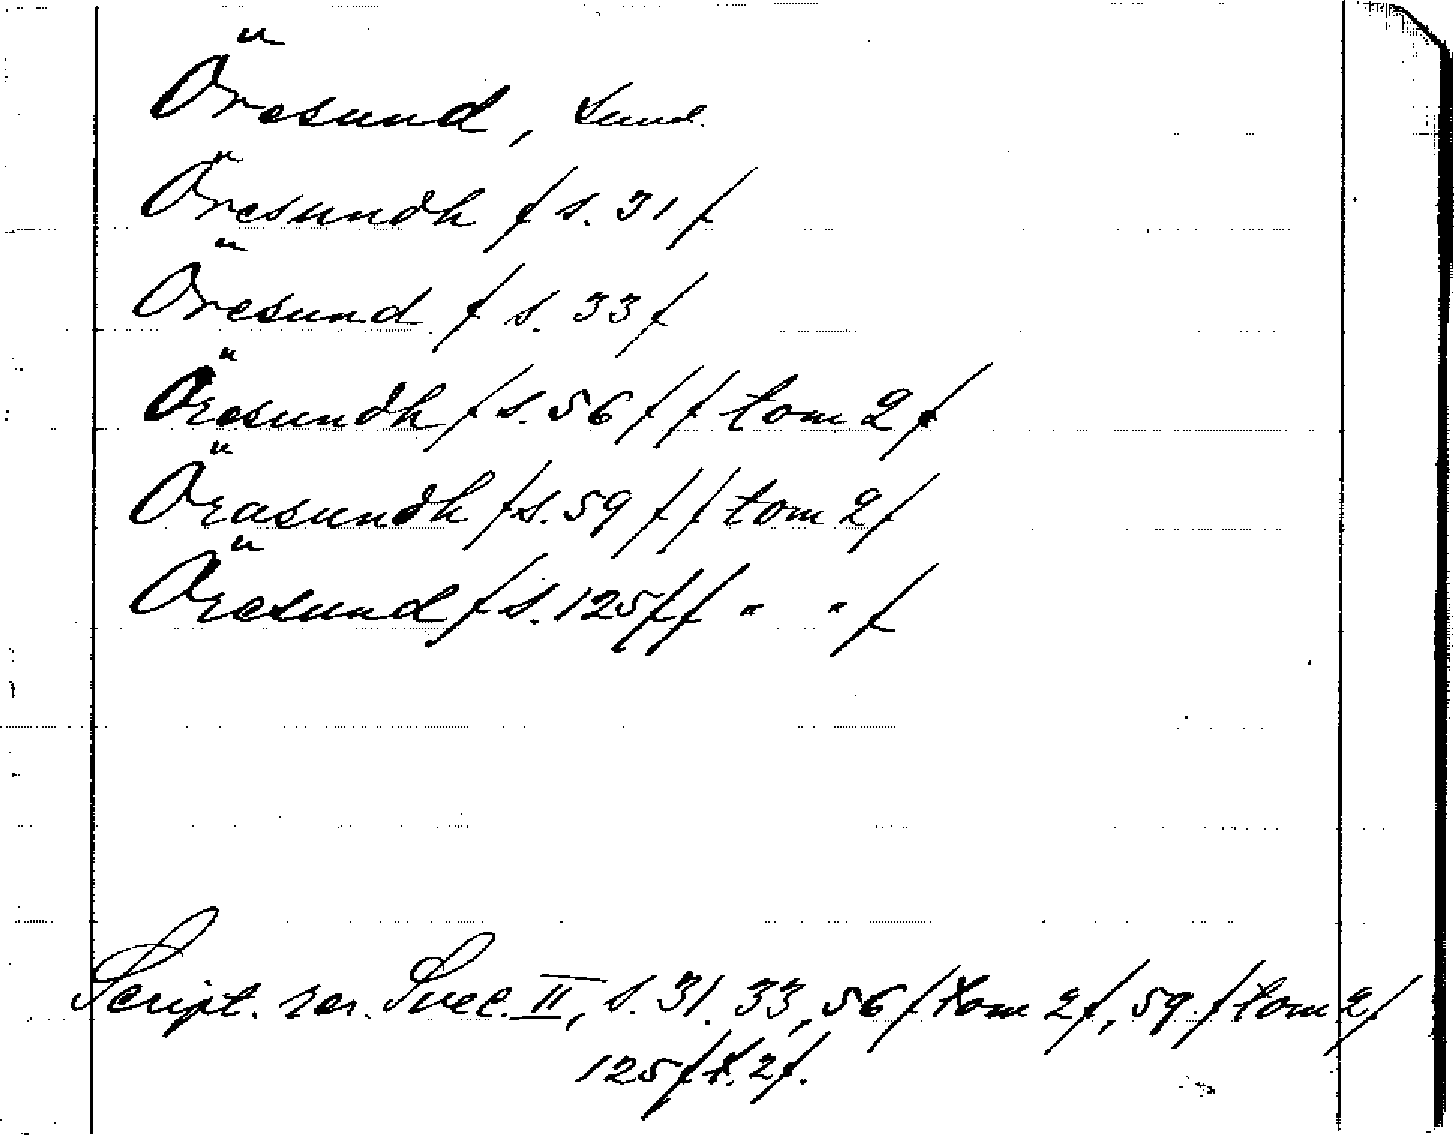 Öresund, Sund.
Öresundh /s. 31/
Öresund /s. 33/
Öresundh /s. 56/ /tom 2/
Örasundh /s. 59/ /tom 2/
Öresund /s. 125/ / " " /
Script. rer. Svec. II, s. 31. 33, 56 /tom 2/, 59 /tom 2/
125 /t. 2/.